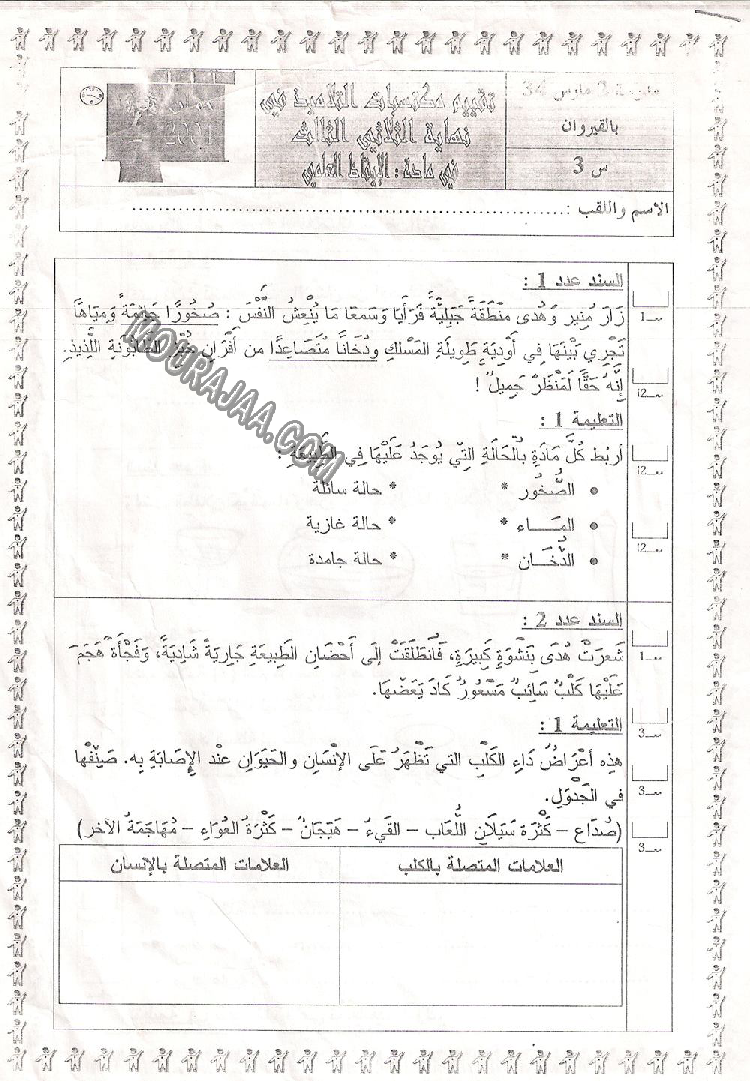 مدرسة 2 مارس 34
بالقيروان
س 3
تقييم مكتسبات التلاميذ في
نهاية الثلاثي الثالث
في مادة : الإيقاظ العلمي
الاسم واللقب :
السند عدد 1 :
زَارَ مُنِير وَهُدَى مِنْطَقَةً جَبَلِيَّةً فَرَأَيَا وَسَمِعَا مَا يُنْعِشُ النَّفْسَ : صُخُورًا جَاثِمَةً وَمِيَاهًا
تَجْرِي بَيْنَهَا فِي أَوْدِيَةٍ طَوِيلَةِ المَسْلَكِ ودُخَانًا مُتَصَاعِدًا من أَفْرَانِ خُبْزِ الطَّابُونَةِ اللَّذِيذِ.
إِنَّهُ حَقًّا لَمَنْظَرٌ جَمِيلٌ !
التعليمة 1 :
أربْط كُلَّ مَادَةٍ بِالْحَالَةِ التِّي يُوجَدُ عَلَيْهَا فِي الطَّبِيعَةِ :
• الصُّخُور * * حالة سائلة
• المَـــاء * * حالة غازية
• الدُّخَـان * * حالة جامدة
مـ1
مـ2
مـ2
مـ2
السند عدد 2 :
شَعَرَتْ هُدَى بِنَشْوَةٍ كَبِيرَةٍ، فَانْطَلَقَتْ إِلَى أَحْضَانِ الطَّبِيعَةِ جَارِيَةً شَادِيَةً، وَفَجْأَةً هَجَمَ
عَلَيْهَا كَلْبٌ سَائِبٌ مَسْعُورٌ كَادَ يَعَضُّهَا.
التعليمة 1 :
هذِه أعْرَاضُ دَاءِ الكَلْبِ التي تَظْهَرُ عَلَى الإِنْسَانِ والحَيَوَانِ عِنْد الإِصَابَةِ بِه. صَنِّفْها
في الجَدْوَلِ.
(صُدَاع – كَثْرَة سَيَلَانِ اللُّعَاب – القَيءُ – هَيَجَانٌ – كَثْرَةُ العُوَاءِ – مُهَاجَمَةُ الآخر)
العلامات المتصلة بالكلب العلامات المتصلة بالإنسان
مـ1
مـ3
مـ3
مـ3
MOURAJAA.COM